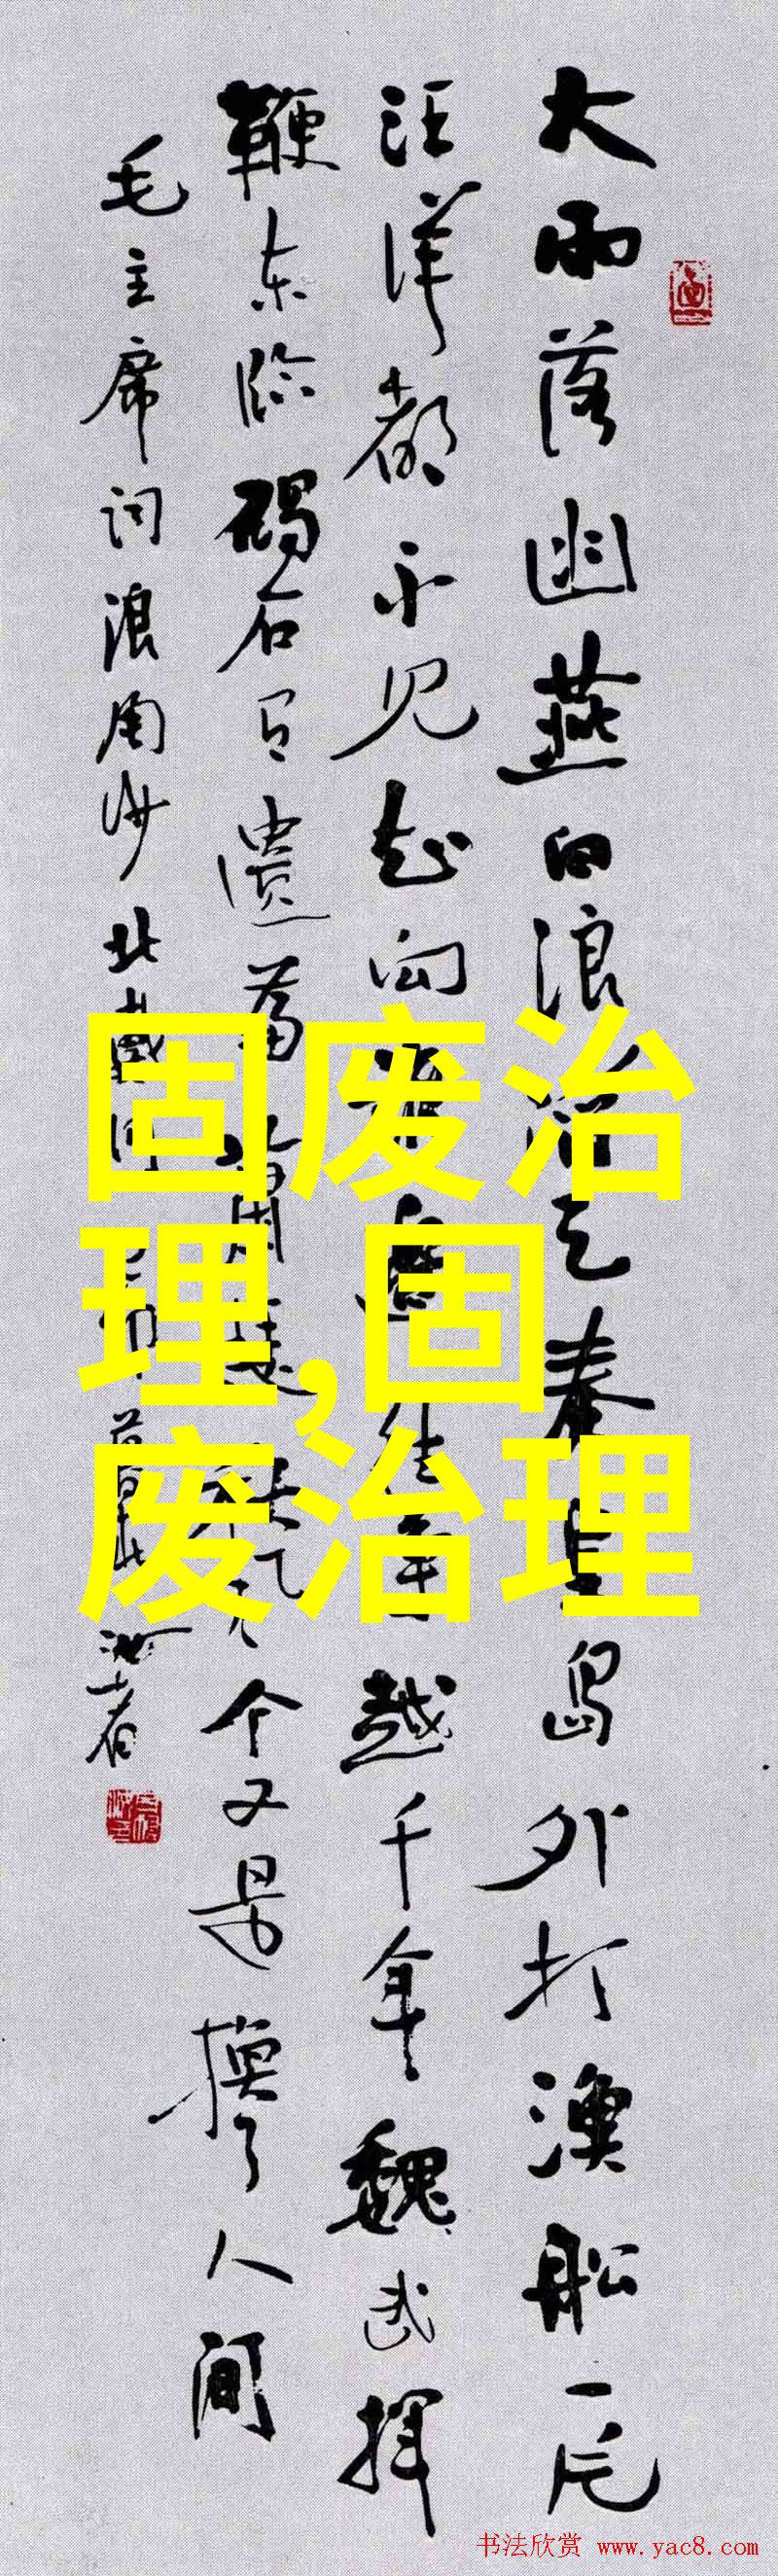 大雨落幽燕白浪滔天秦皇岛外打渔船一片
汪洋都不见知向谁边往事越千年魏武挥
鞭东临碣石有遗篇萧瑟秋风今又是换了人间
毛主席词浪淘沙北戴河
固废治
理,固
废治理
书法欣赏 www.yac8.com